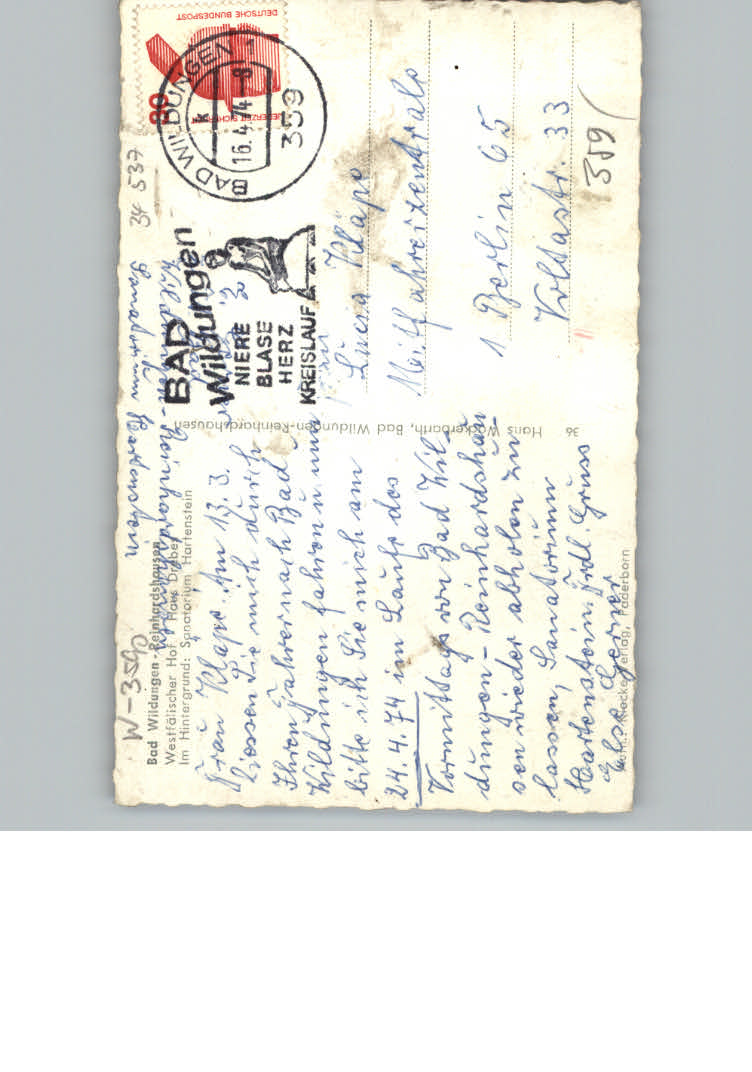 W-359p
Bad Wildungen-Reinhardshausen
Westfälischer Hof Haus Dreber
Im Hintergrund: Sanatorium Hartenstein
Sanatorium Hartenstein
Wildungen-Reinhardshausen
Frau Kläpo. Am 13.3.
liessen Sie mich durch
Ihren Fahrer nach Bad
Wildungen fahren u nun
bitte ich Sie mich am
24.4.74 im Laufe des
Vormittags von Bad Wil-
dungen-Reinhardshau-
sen wieder abholen zu
lassen, Sanatorium
Hartenstein. Frdl. Gruss
Else
Klocke Verlag, Paderborn
36 Hans Wackerbarth, Bad Wildungen-Reinhardshausen
34 537
DEUTSCHE BUNDESPOST
JEDERZEIT SICHERHEIT
30
BAD WILDUNGEN 1
16.4.74-8
359
BAD
Wildungen
NIERE
BLASE
HERZ
KREISLAUF
Lucia Kläpo
Mitfahrzentrale
1 Berlin 65
Voltastr. 33
359